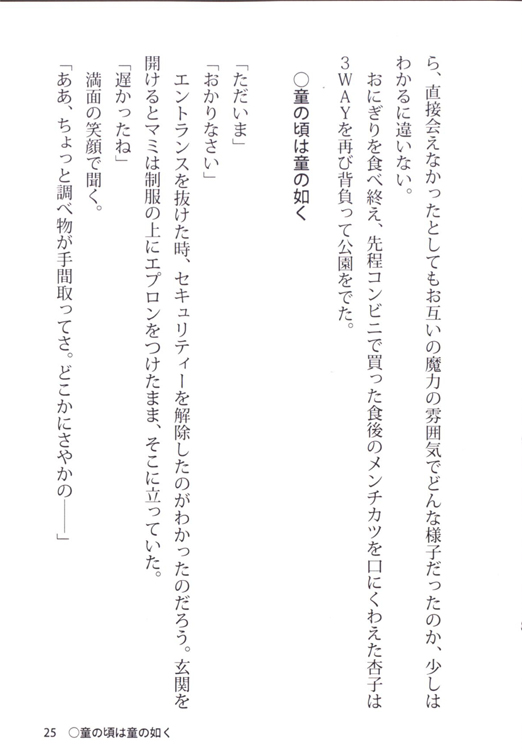 ら、直接会えなかったとしてもお互いの魔力の雰囲気でどんな様子だったのか、少しは
わかるに違いない。
おにぎりを食べ終え、先程コンビニで買った食後のメンチカツを口にくわえた杏子は
3WAYを再び背負って公園をでた。
○童の頃は童の如く
「ただいま」
「おかりなさい」
エントランスを抜けた時、セキュリティーを解除したのがわかったのだろう。玄関を
開けるとマミは制服の上にエプロンをつけたまま、そこに立っていた。
「遅かったね」
満面の笑顔で聞く。
「ああ、ちょっと調べ物が手間取ってさ。どこかにさやかの――」
25 ○童の頃は童の如く